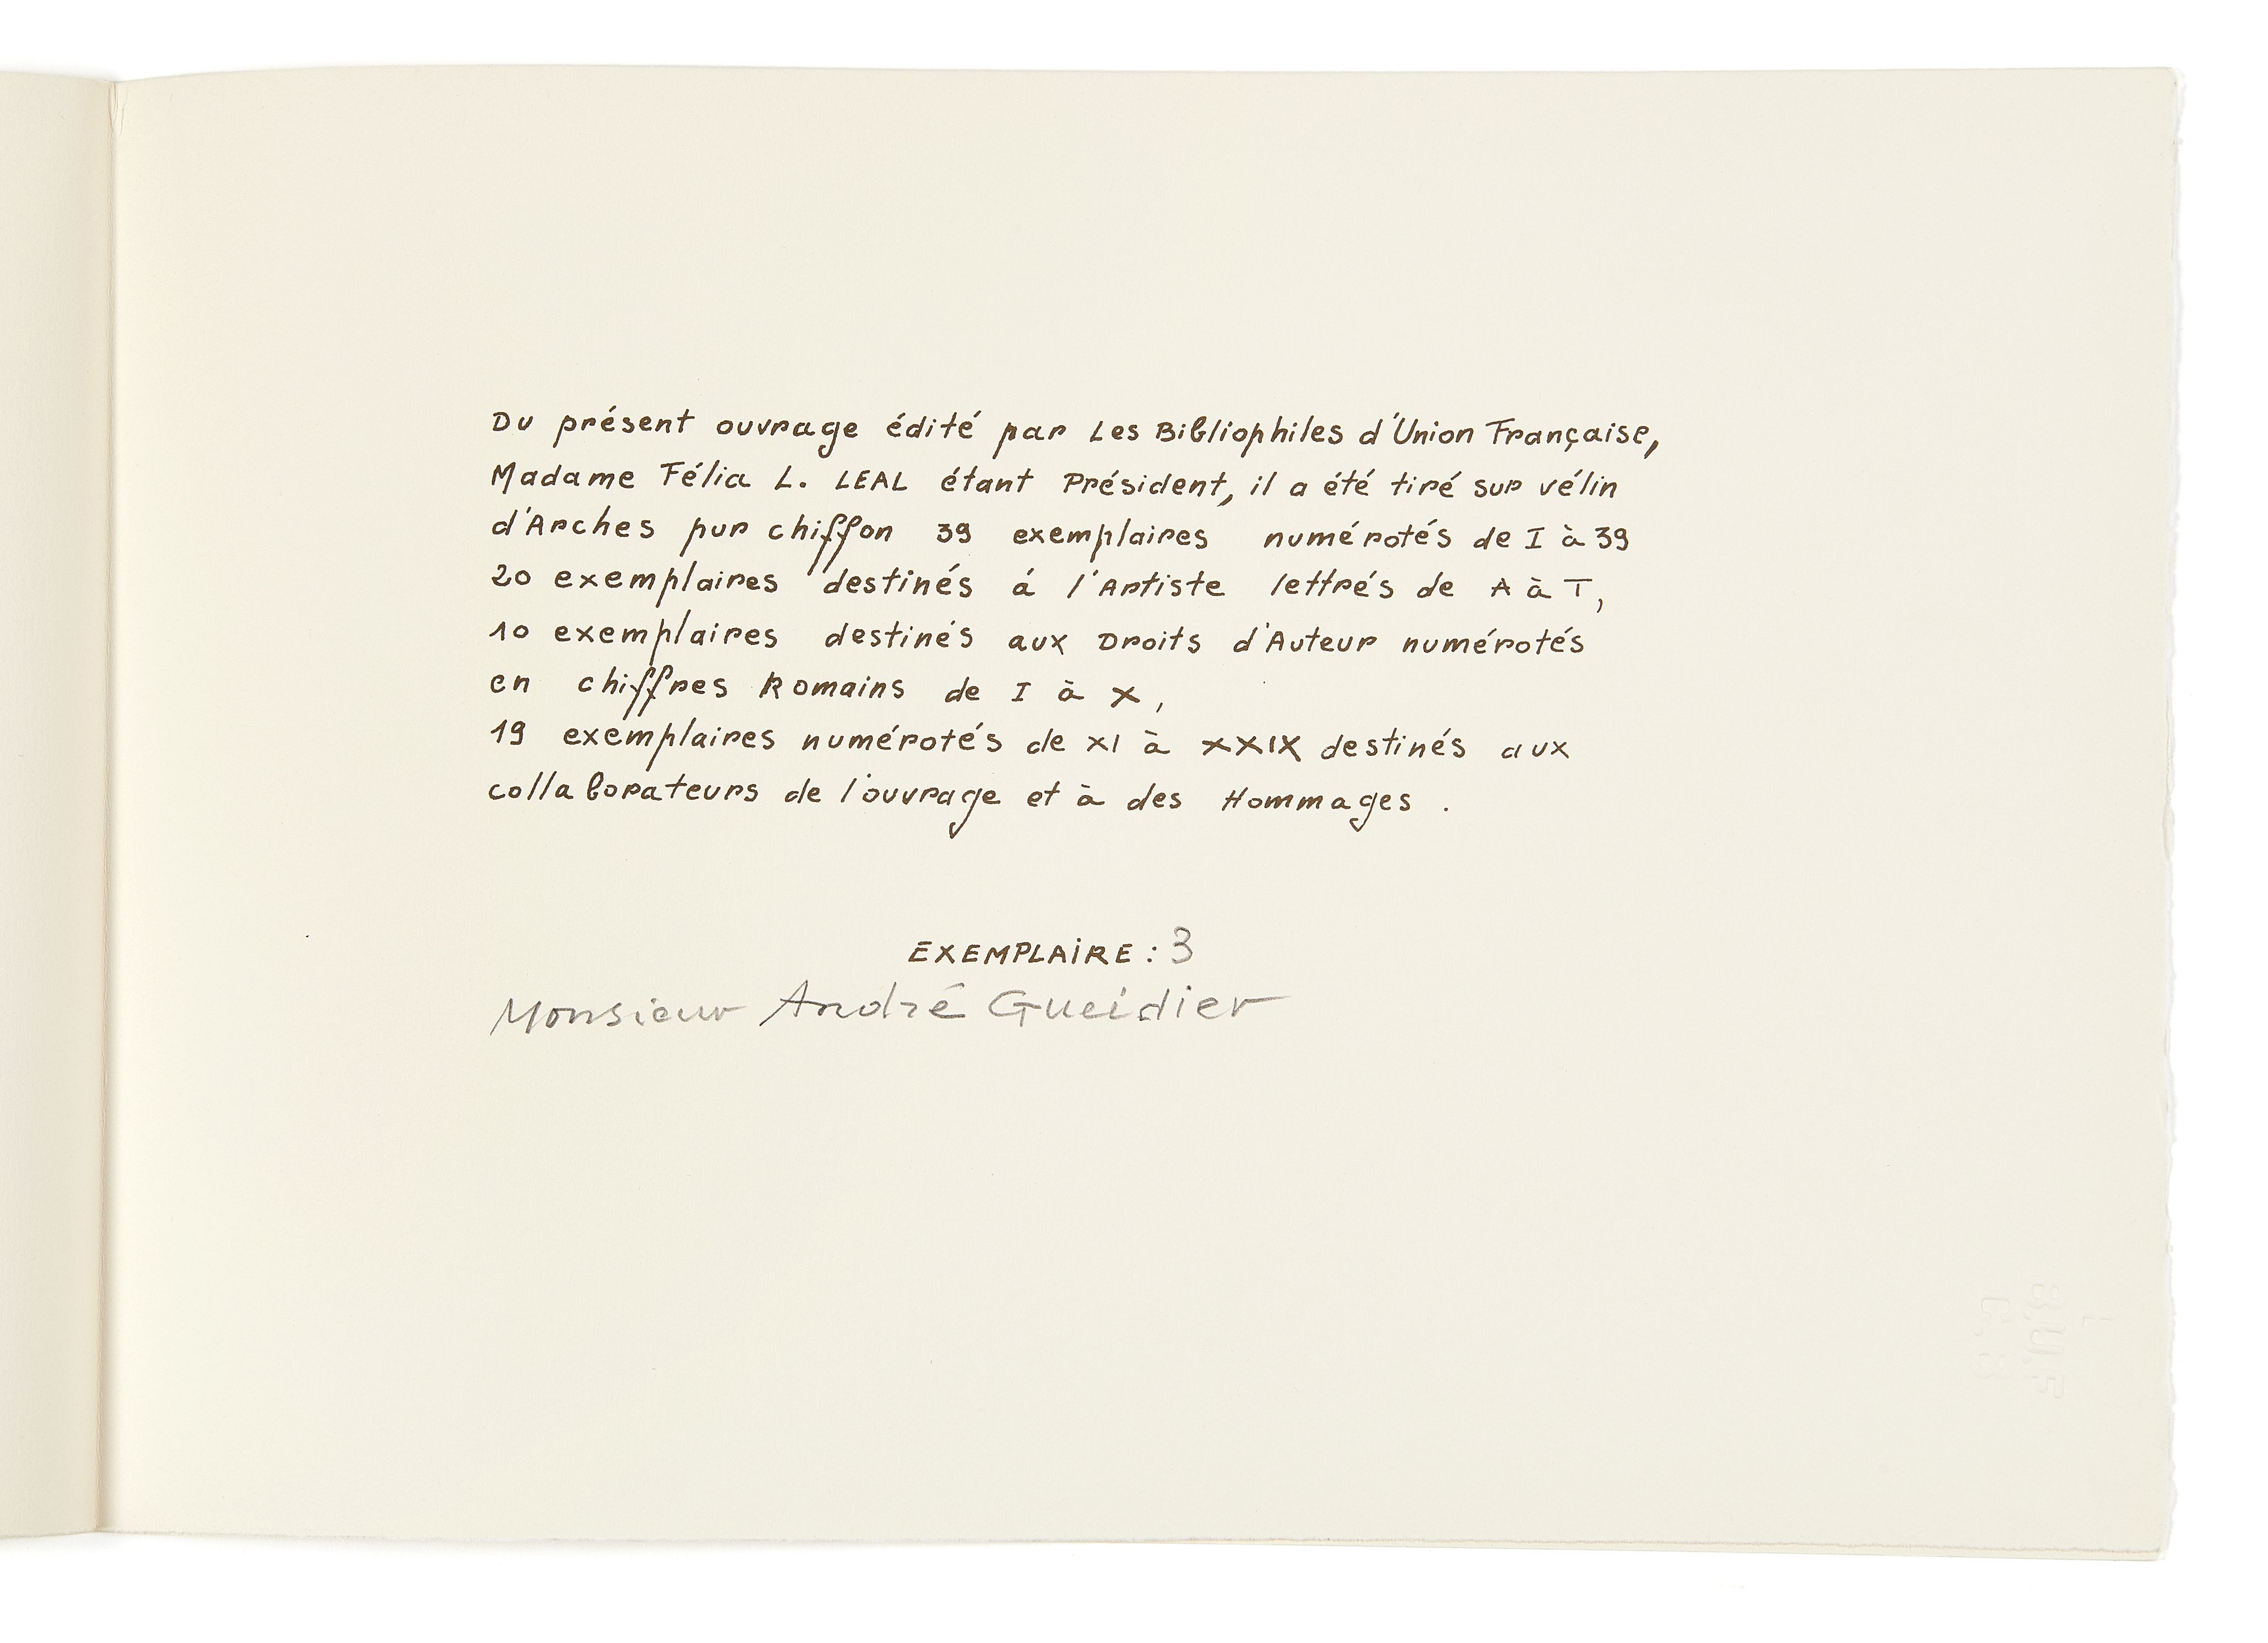 Du présent ouvrage édité par Les Bibliophiles d'Union Française,
Madame Félia L. LEAL étant Président, il a été tiré sur vélin
d'Arches pur chiffon 39 exemplaires numérotés de I à 39
20 exemplaires destinés á l'Artiste lettrés de A à T,
10 exemplaires destinés aux Droits d'Auteur numérotés
en chiffres Romains de I à X,
19 exemplaires numérotés de XI à XXIX destinés aux
collaborateurs de l'ouvrage et à des Hommages .
EXEMPLAIRE : 3
Monsieur André Gueidier